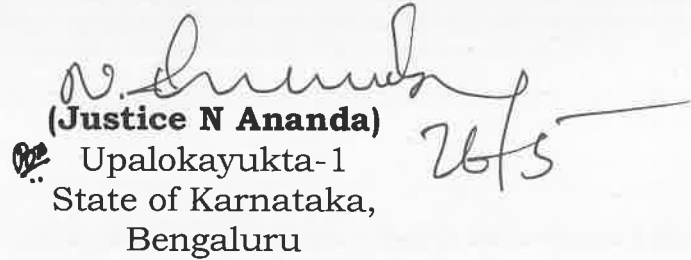 N. Ananda
(Justice N Ananda)
26/5
Upalokayukta-1
State of Karnataka,
Bengaluru